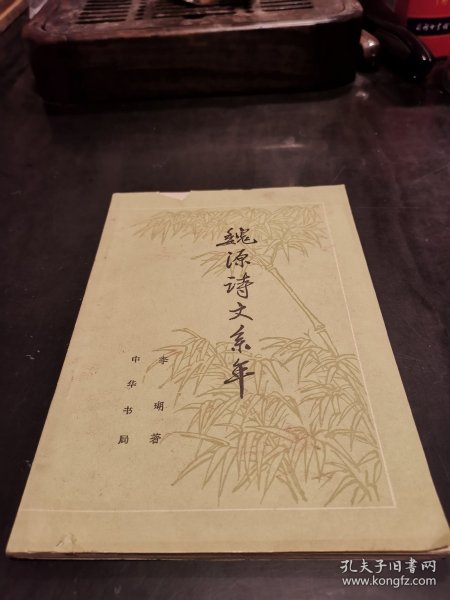 魏源诗文系年
李瑚著
中华书局
孔夫子旧书网
www.kongfz.com